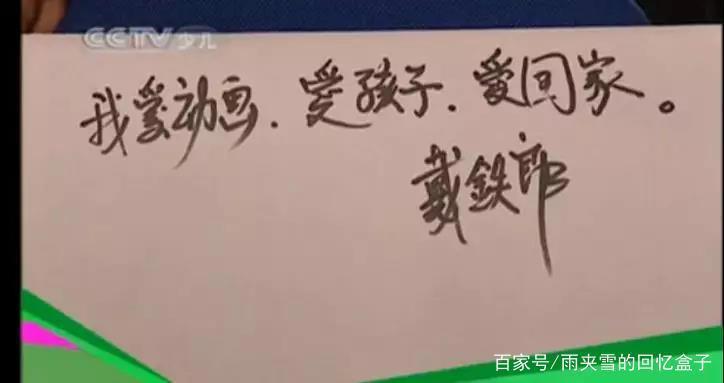 CCTV 少儿
我爱动画.爱孩子.爱回家。
戴鉄郎
百家号/雨夹雪的回忆盒子